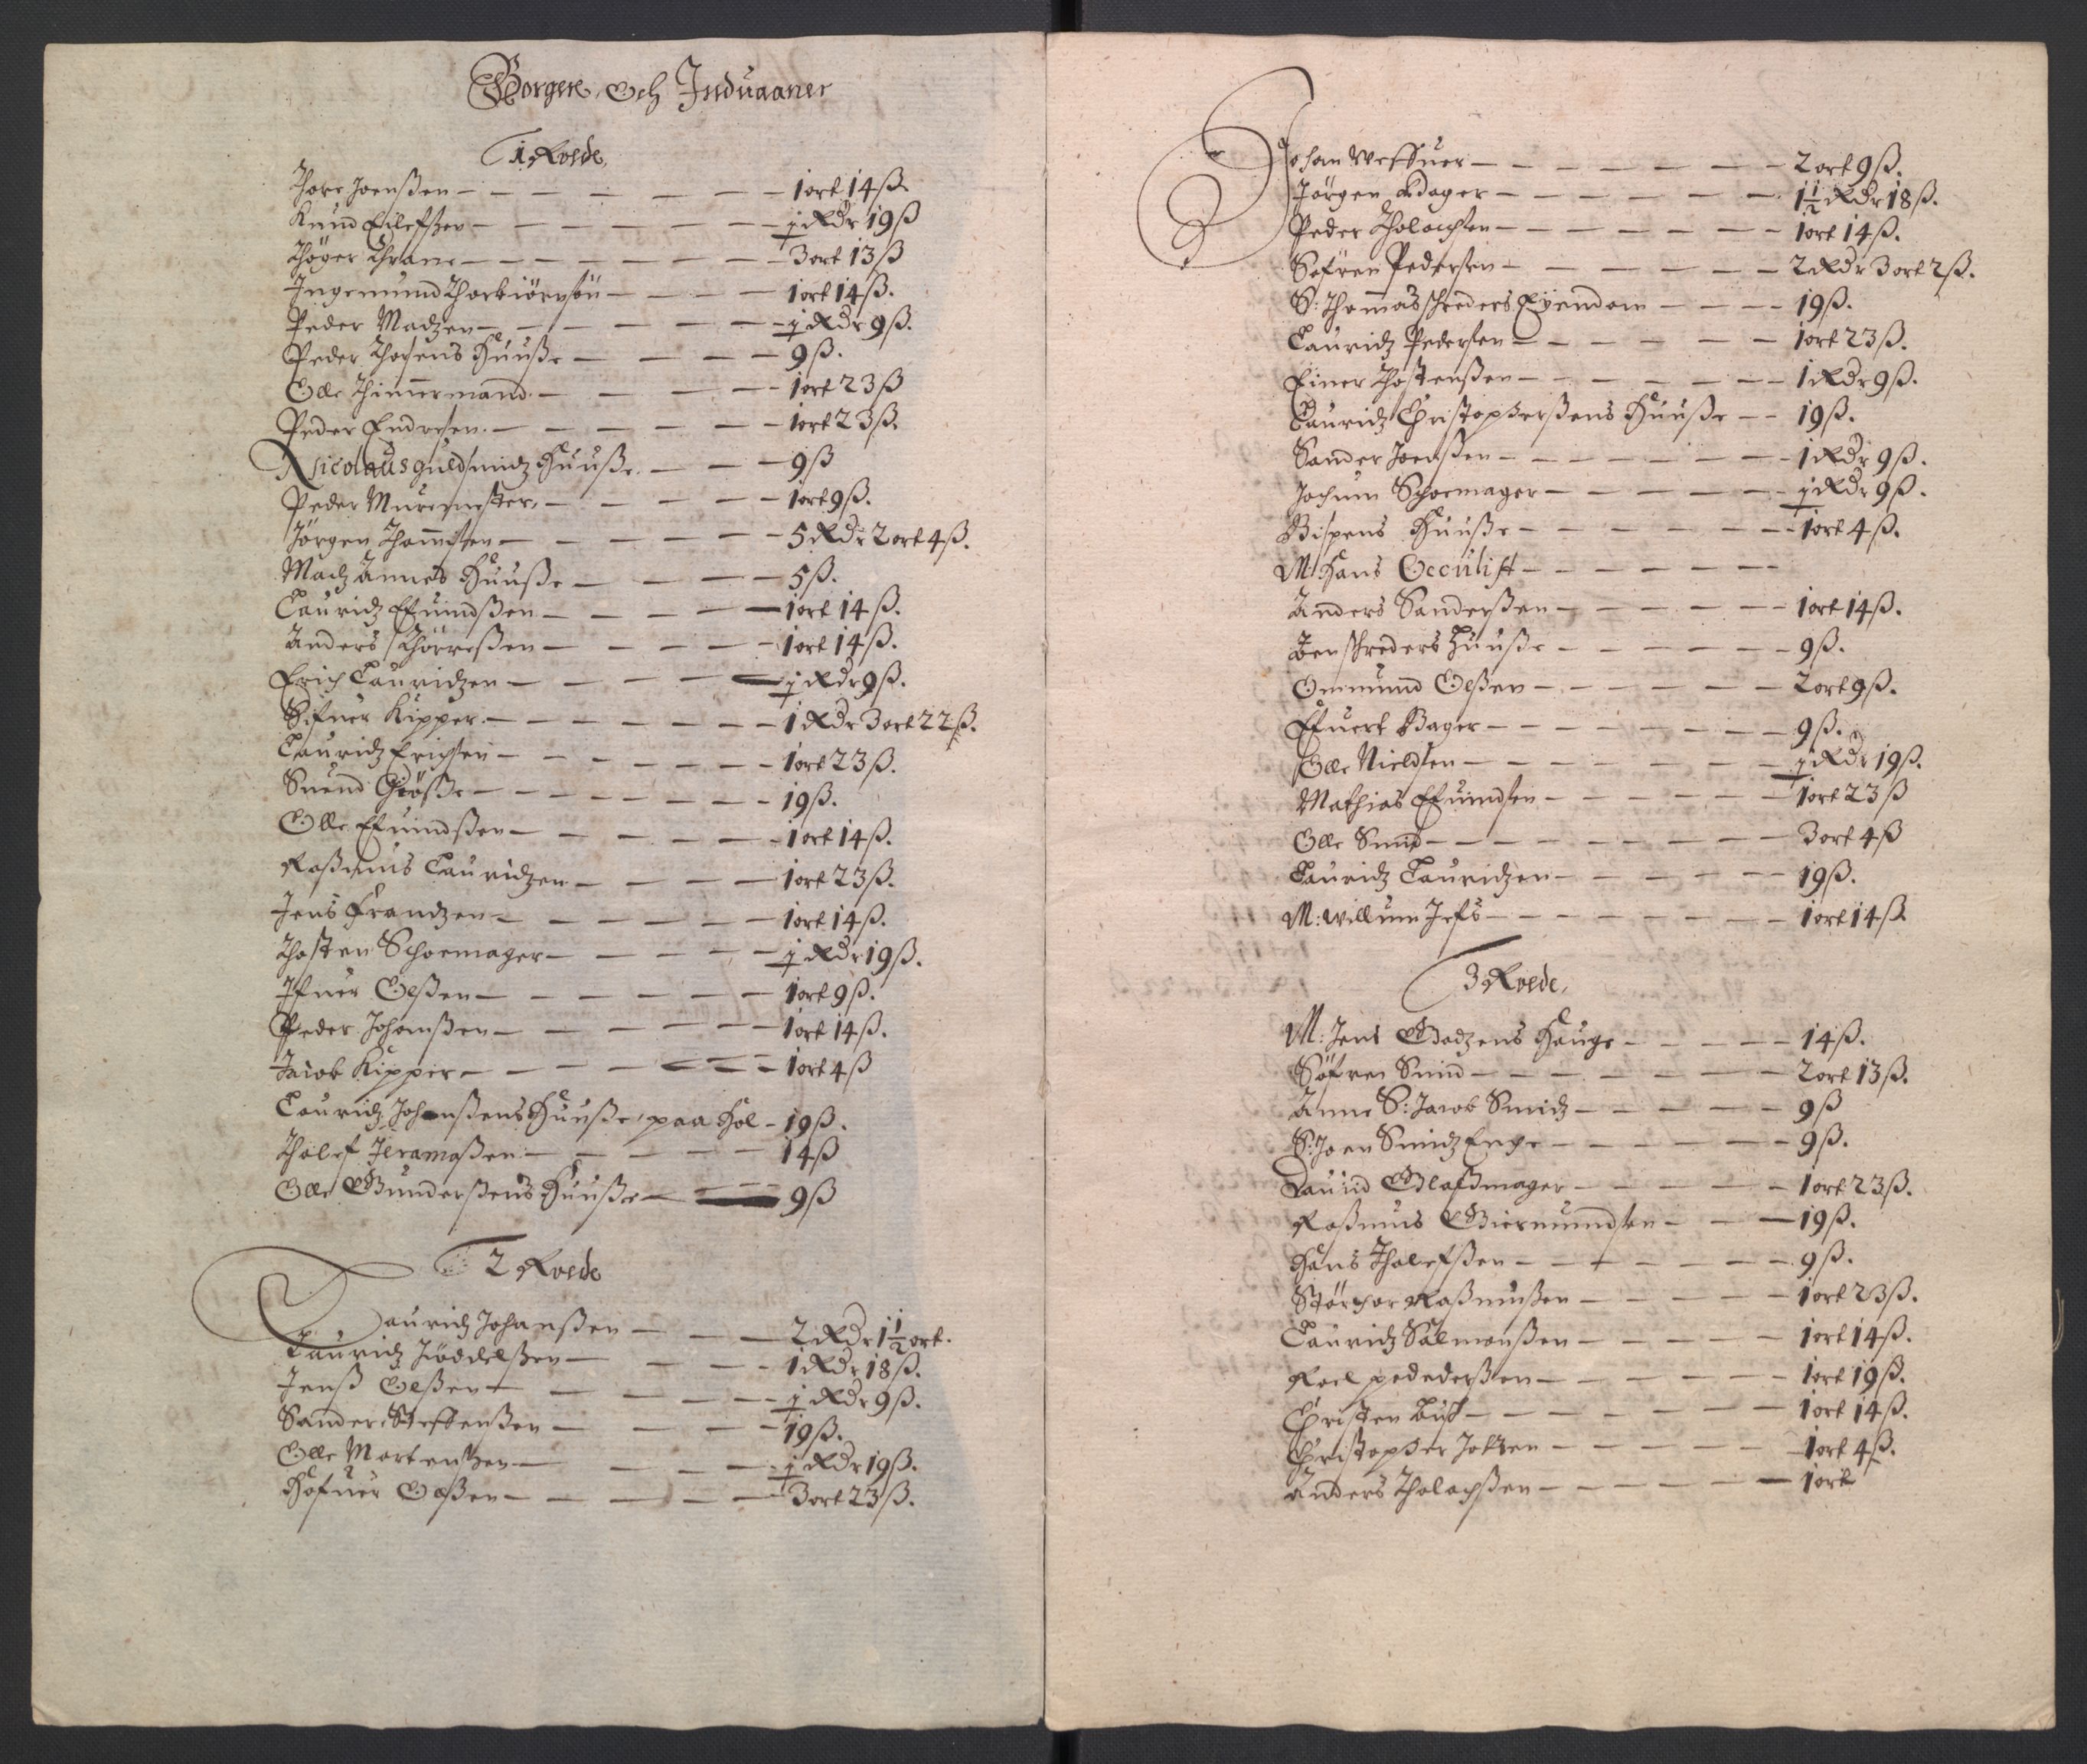 Borgere, Och Induaaner
1 Roede,
Thore Joenßen — 1 ort 14 ß.
Knud Eilefßen — ½ Rdr 19 ß
Thöger Thrane — 3 ort 13 ß
Ingemund Thorbiörnsön — 1 ort 14 ß.
Peder Madzen — ½ Rdr 9 ß.
Peder Thosens Huuße — 9 ß.
Olle Thimmermand — 1 ort 23 ß
Peder Endresen — 1 ort 23 ß.
Nicolaus guldsmidz Huuße — 9 ß
Peder Muremester, — 1 ort 9 ß.
Jörgen Thommisen — 5 Rdr 2 ort 4 ß.
Madz Annes Huuße — 5 ß.
Lauridz Efuindßen — 1 ort 14 ß.
Anders Thörreßen — 1 ort 14 ß.
Erich Lauridzen — ½ Rdr 9 ß.
Sifuer Kipper — 1 Rdr 3 ort 22 ß.
Lauridz Erichsen — 1 ort 23 ß.
Suend Giöße — 19 ß.
Olle Efuindßen — 1 ort 14 ß.
Raßmus Lauridzen — 1 ort 23 ß.
Jens Frandzen — 1 ort 14 ß.
Thosten Schoemager — ½ Rdr 19 ß.
Ifuer Olßen — 1 ort 9 ß.
Peder Johanßen — 1 ort 14 ß.
Jacob Kipper — 1 ort 4 ß
Lauridz Johanßens Huuße, paa Hol — 19 ß.
Tholef Jeramaßen — 14 ß
Olle Gunderßens Huuße — 9 ß
2 Roede
Lauridz Johanßen — 2 Rdr 1½ ort.
Lauridz Jöddelßen — 1 Rdr 18 ß.
Jenß Olßen — ½ Rdr 9 ß.
Sander Steffenßen — 19 ß.
Olle Mortenßen — ½ Rdr 19 ß.
Hofuer Olßen — 3 ort 23 ß.
Johan Weffuer — 2 ort 9 ß.
Jörgen Kdager — 1½ Rdr 18 ß.
Peder Tholachsen — 1 ort 14 ß.
Söfren Pedersen — 2 Rdr 3 ort 2 ß.
S: Thomas schreders Eÿendom — 19 ß.
Lauridz Pedersen — 1 ort 23 ß.
Einer Thostenßen — 1 Rdr 9 ß.
Lauridz Christopherßens Huuße — 19 ß.
Sander Joenßen — 1 Rdr 9 ß.
Jochum Schoemager — ½ Rdr 9 ß.
Bispens Huuße — 1 ort 4 ß.
M: Hans Occulist —
Anders Sanderßen — 1 ort 14 ß.
Joen schreders Huuße — 9 ß.
Ommund Olßen — 2 ort 9 ß.
Efuert Bager — 9 ß.
Olle Nieldsen — ½ Rdr 19 ß.
Mathias Efuindsen — 1 ort 23 ß
Olle Smid — 3 ort 4 ß
Lauridz Lauridzen — 19 ß.
M: Willum Jefs — 1 ort 14 ß.
3 Roede,
M: Jens Godzens Hauge — 14 ß.
Söfren Smid — 2 ort 13 ß.
Anne S: Jacob Smidz — 9 ß
S: Joen Smidz Enche — 9 ß.
Dauid Glaßmager — 1 ort 23 ß.
Raßmus Giermundsen — 19 ß.
Hans Tholefßen — 9 ß.
Störchor Raßmußen — 1 ort 23 ß.
Lauridz Salmonßen — 1 ort 14 ß.
Roel pedederßen — 1 ort 19 ß.
Christen Buch — 1 ort 14 ß.
Christopher Joltzen — 1 ort 4 ß.
Anders Tholachßen — 1 ort